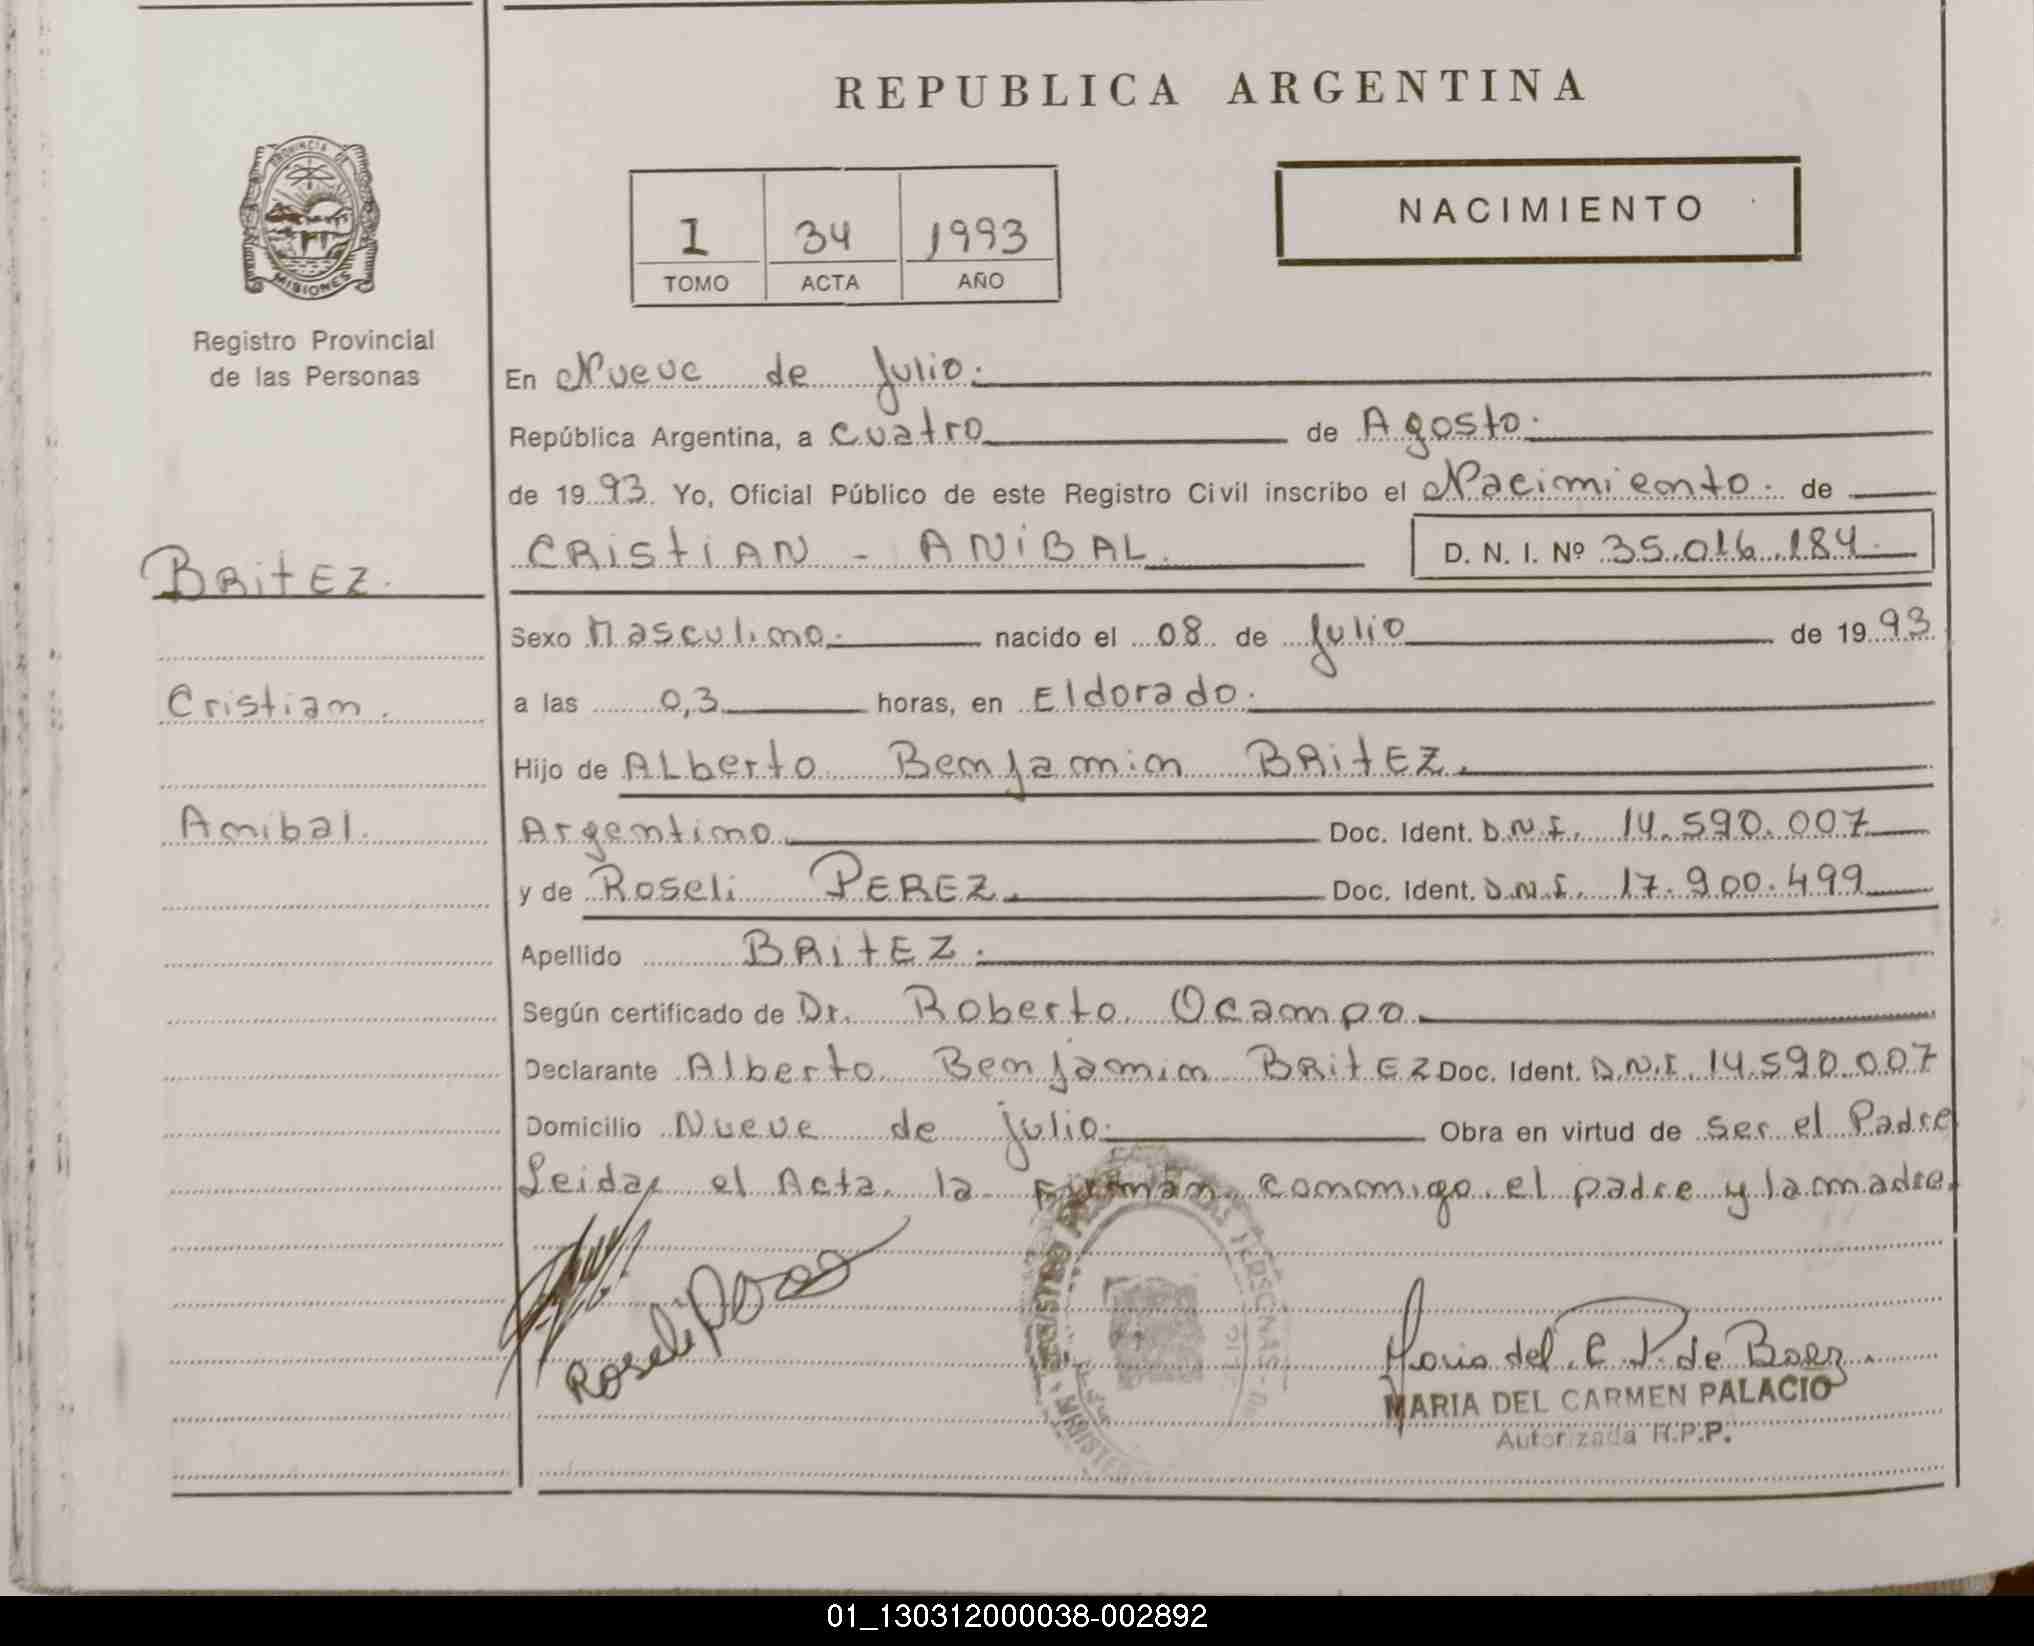 REPUBLICA ARGENTINA
PROVINCIA DE
MISIONES
Registro Provincial
de las Personas
1 34 1993
TOMO ACTA AÑO
NACIMIENTO
En Nueve de Julio.
República Argentina, a cuatro de Agosto.
de 1993. Yo, Oficial Público de este Registro Civil inscribo el Nacimiento. de
CRISTIAN - ANIBAL. D. N. I. Nº 35.016.184.
BRITEZ.
Cristian.
Anibal.
Sexo Masculino. nacido el 08 de Julio de 1993
a las 0,3 horas, en Eldorado.
Hijo de ALberto Benjamin BRITEZ.
Argentino. Doc. Ident. D.N.I. 14.590.007
y de Roseli PEREZ. Doc. Ident. D.N.I. 17.900.499
Apellido BRITEZ.
Según certificado de Dr. Roberto Ocampo.
Declarante Alberto Benjamin BRITEZ Doc. Ident. D.N.I. 14.590.007
Domicilio Nueve de julio. Obra en virtud de ser el Padre
Leida el Acta, la Firman conmigo el padre y la madre.
Roseli
Maria del C. P. de Baez
MARIA DEL CARMEN PALACIO
Autorizada R.P.P.
01_130312000038-002892